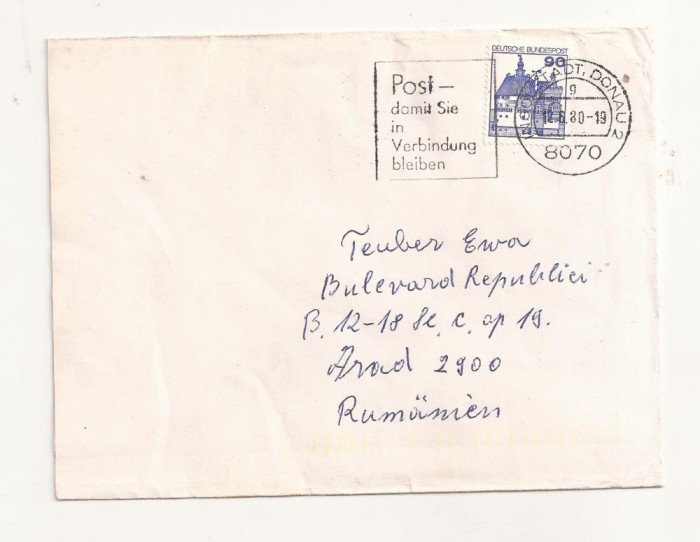 DEUTSCHE BUNDESPOST
90
Post–
damit Sie
in
Verbindung
bleiben
STADT, DONAU 2
g
12.6.80-19
8070
Teuber Ewa
Bulevard Republici
B. 12-18 Sc. C. ap 19.
Arad 2900
Rumänien